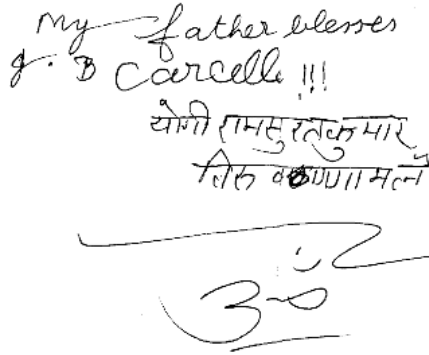 My father blesses
J. B Carcelle !!!
योगी रामसुरतकुमार
ॐ